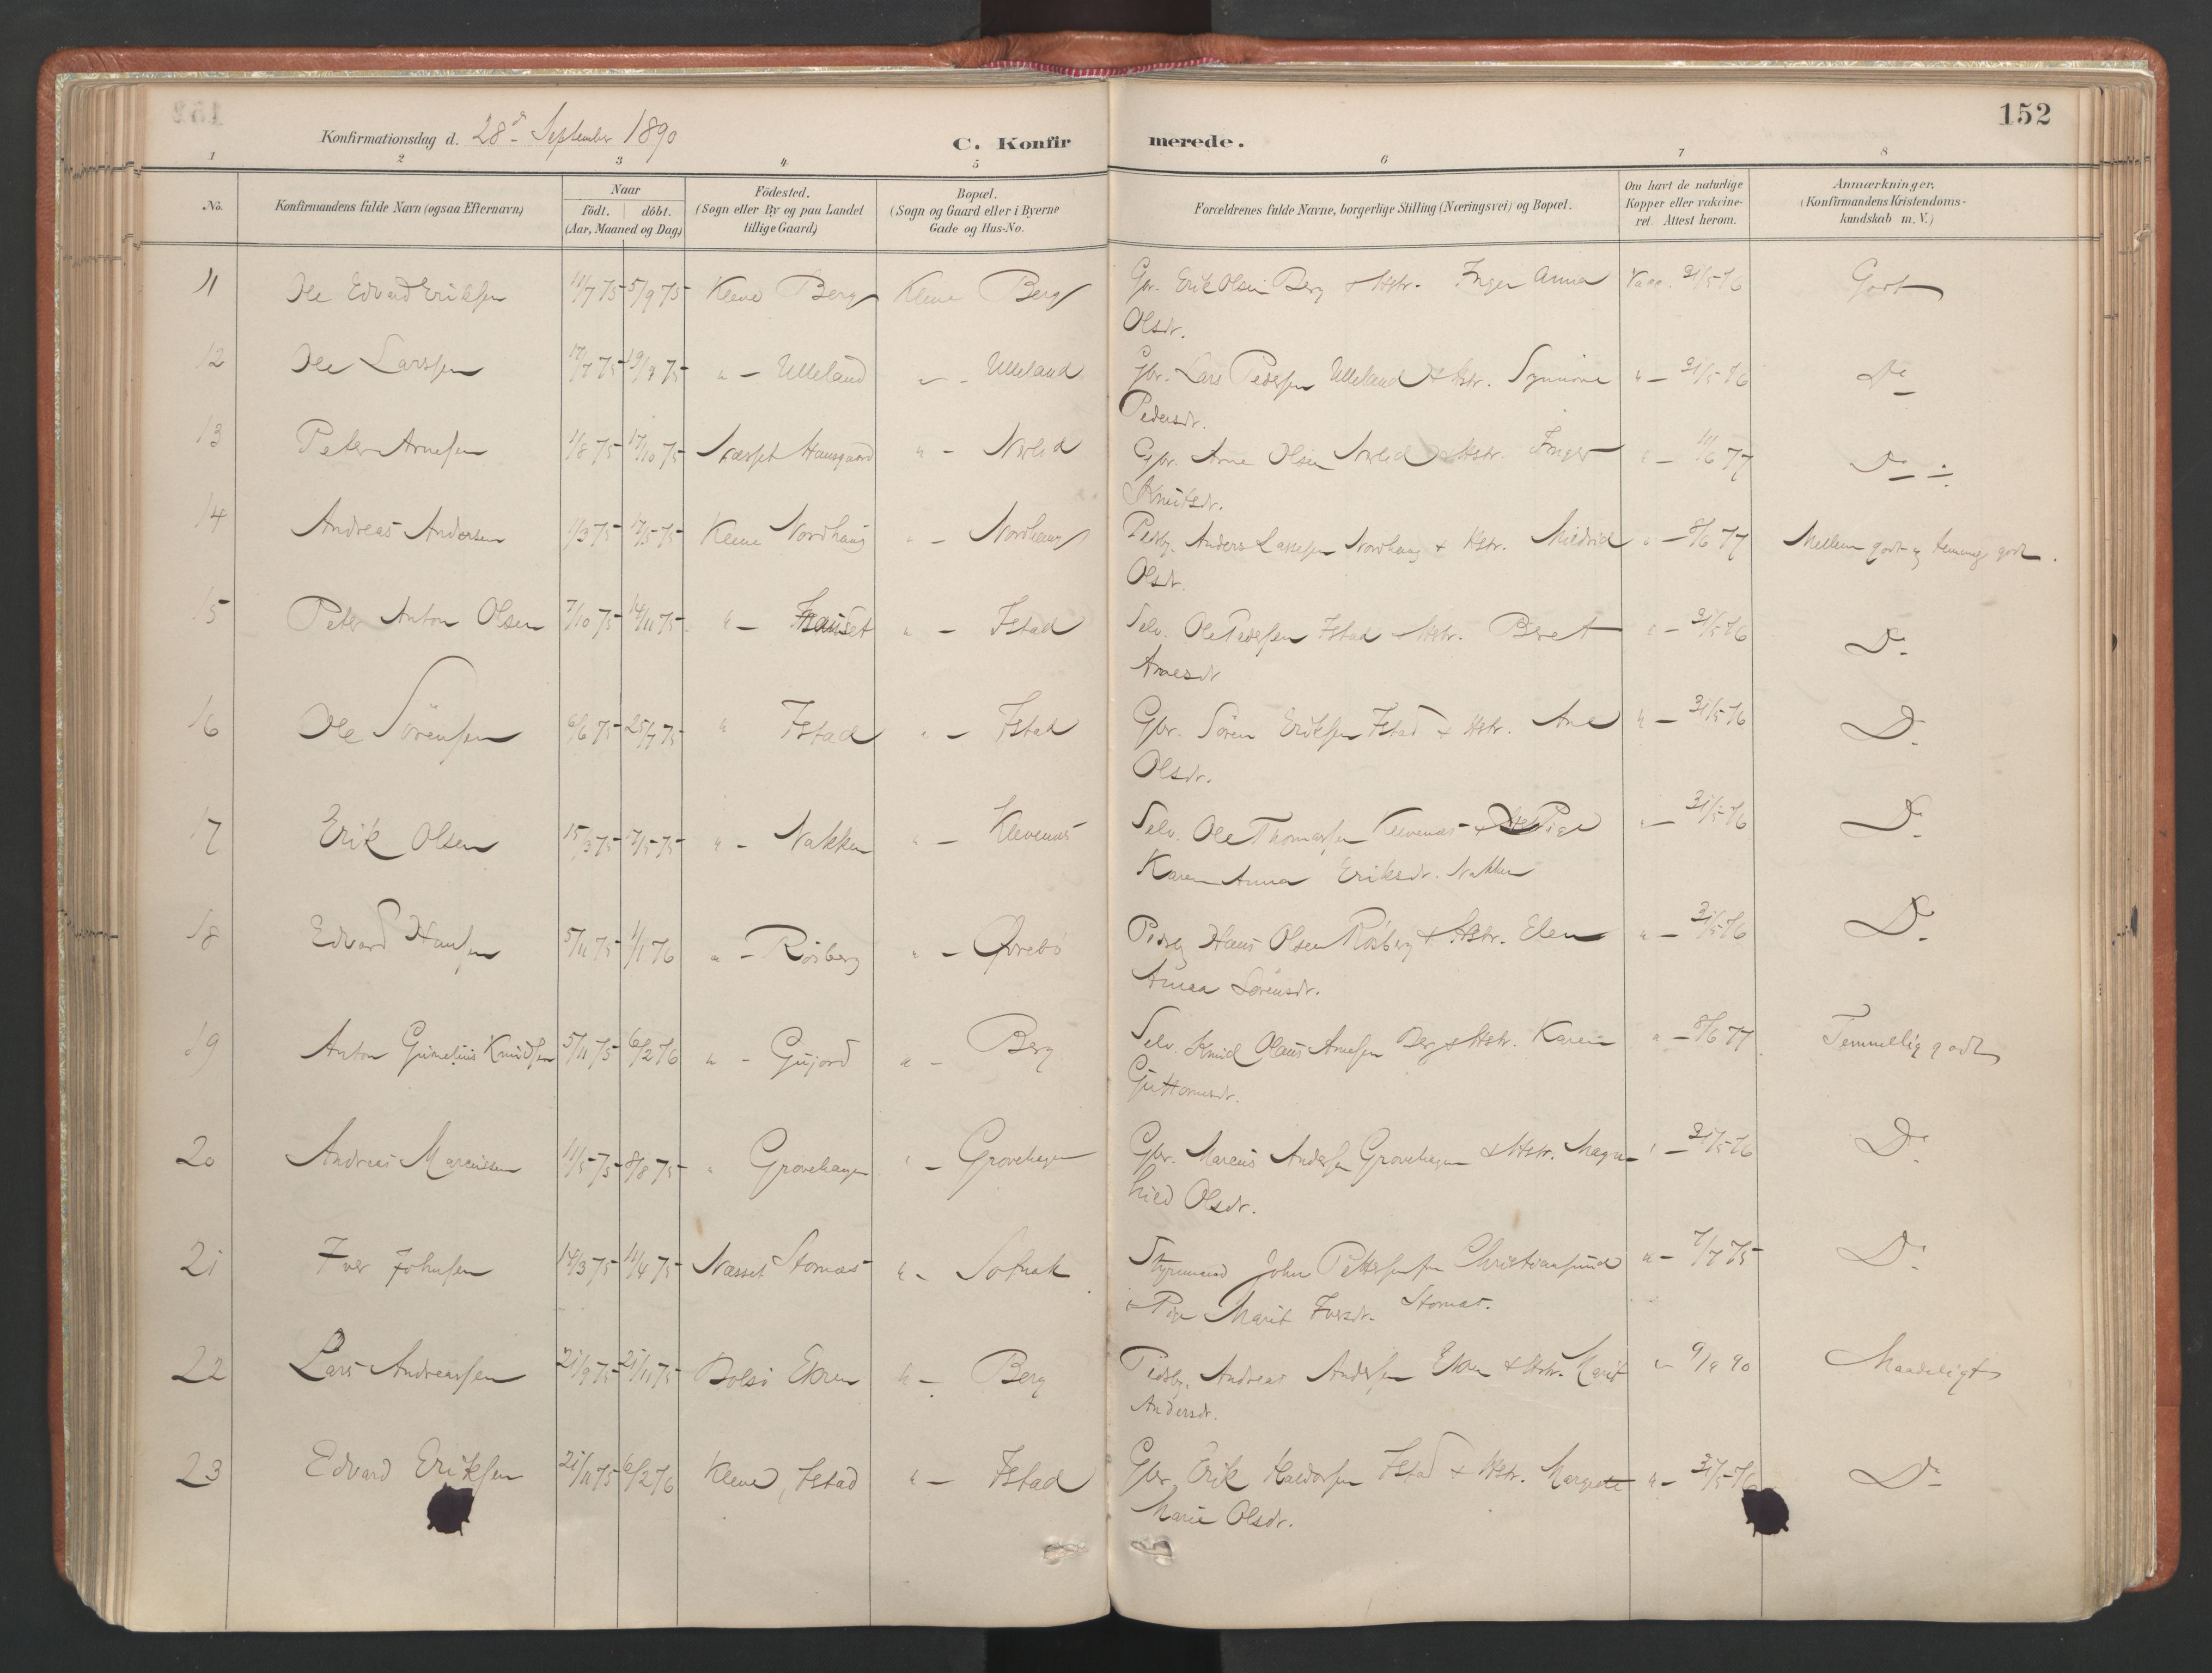 152
Konfirmationsdag d. 28de September 1890
C. Konfir merede.
1 2 3 4 5 6 7 8
No.
Konfirmandens fulde Navn (ogsaa Efternavn)
Naar
födt. döbt.
(Aar, Maaned og Dag)
Födested.
(Sogn eller By og paa Landet
tillige Gaard)
Bopæl.
(Sogn og Gaard eller i Byerne
Gade og Hus-No.
Forældrenes fulde Navne, borgerlige Stilling (Næringsvei) og Bopæl.
Om havt de naturlige
Kopper eller vakcine-
ret. Attest herom.
Anmærkninger.
(Konfirmandens Kristendoms-
kundskab m. V.)
11 Ole Edvard Eriksen 11/7 75 5/9 75 Kleve Berg Kleve Berg Gbr. Erik Olsen Berg & Hstr. Inger Anna Vacc. 31/5 76 Godt
Olsdr.
12 Ole Larssen 17/7 75 19/9 75 " - Ulleland " - Ulleland Gbr. Lars Pedersen Ulleland & Hstr. Synnøve " - 31/5 76 Do
Pedersdr.
13 Peter Arnesen 1/8 75 17/10 75 Næsset Hausgaard " - Nerlid Gbr. Arne Olsen Nerlid & Hstr. Inger " - 11/6 77 Do
Knutsdr.
14 Andreas Andersen 1/3 75 17/5 75 Kleve Nordhaug " - Nordhaug Pldsbg. Anders Lassesen Nordhaug & Hstr. Mildrid " - 8/6 77 Mellem godt og temmeg godt.
Olsdr.
15 Peter Anton Olsen 7/10 75 14/11 75 " - " - Istad Selv. Ole Pedersen Istad & Hstr. Beret " - 31/5 76 Do
Arnesdr
16 Ole Sörensen 6/6 75 25/7 75 " Istad " - Istad Gbr. Sören Eriksen Istad & Hstr. Ane " - 31/5 76 Do
Olsdr.
17 Erik Olsen 15/3 75 17/5 75 " - Nakken " - Klevenæs Selv. Ole Thomassen Klevenæs & Pige " - 31/5 76 Do
Karen Anna Eriksdr. Nakken
18 Edvard Hansen 5/11 75 1/1 76 " - Rösberg " - Ørebö Pldsbg Hans Olsen Rösberg & Hstr. Elen " - 31/5 76 Do
Anna Sörensdr.
19 Anton Knudsen 5/11 75 6/2 76 " - Gujord " - Berg Selv. Knud Olaus Arnesen Berg & Hstr. Karen " - 8/6 77 Temmelig godt
Guttormsdr.
20 Andreas Marcussen 11/5 75 8/8 75 " Grovehagen " - Grovehagen Gbr. Marcus Andersen Grovehagen & Hstr. Magn- " - 31/5 76 Do
hild Olsdr.
21 Iver Johnsen 14/3 75 11/4 75 Næsset Stornæs " - Solnak Styrmand John Pettersen Christiansund " - 7/7 75 Do
& Pige Marit Iversdr. Stornæs.
22 Lars Andreassen 21/9 75 21/11 75 Bolsö Ekren " - Berg Pldsbg. Andreas Andersen Ekren & Hstr. Marit " 9/9 90 Maadeligt
Andersdr.
23 Edvard Eriksen 21/11 75 6/2 76 Kleve, Istad " - Istad Gbr. Erik Haldorsen Istad & Hstr. Margrete " - 31/5 76 Do
Marie Olsdr.